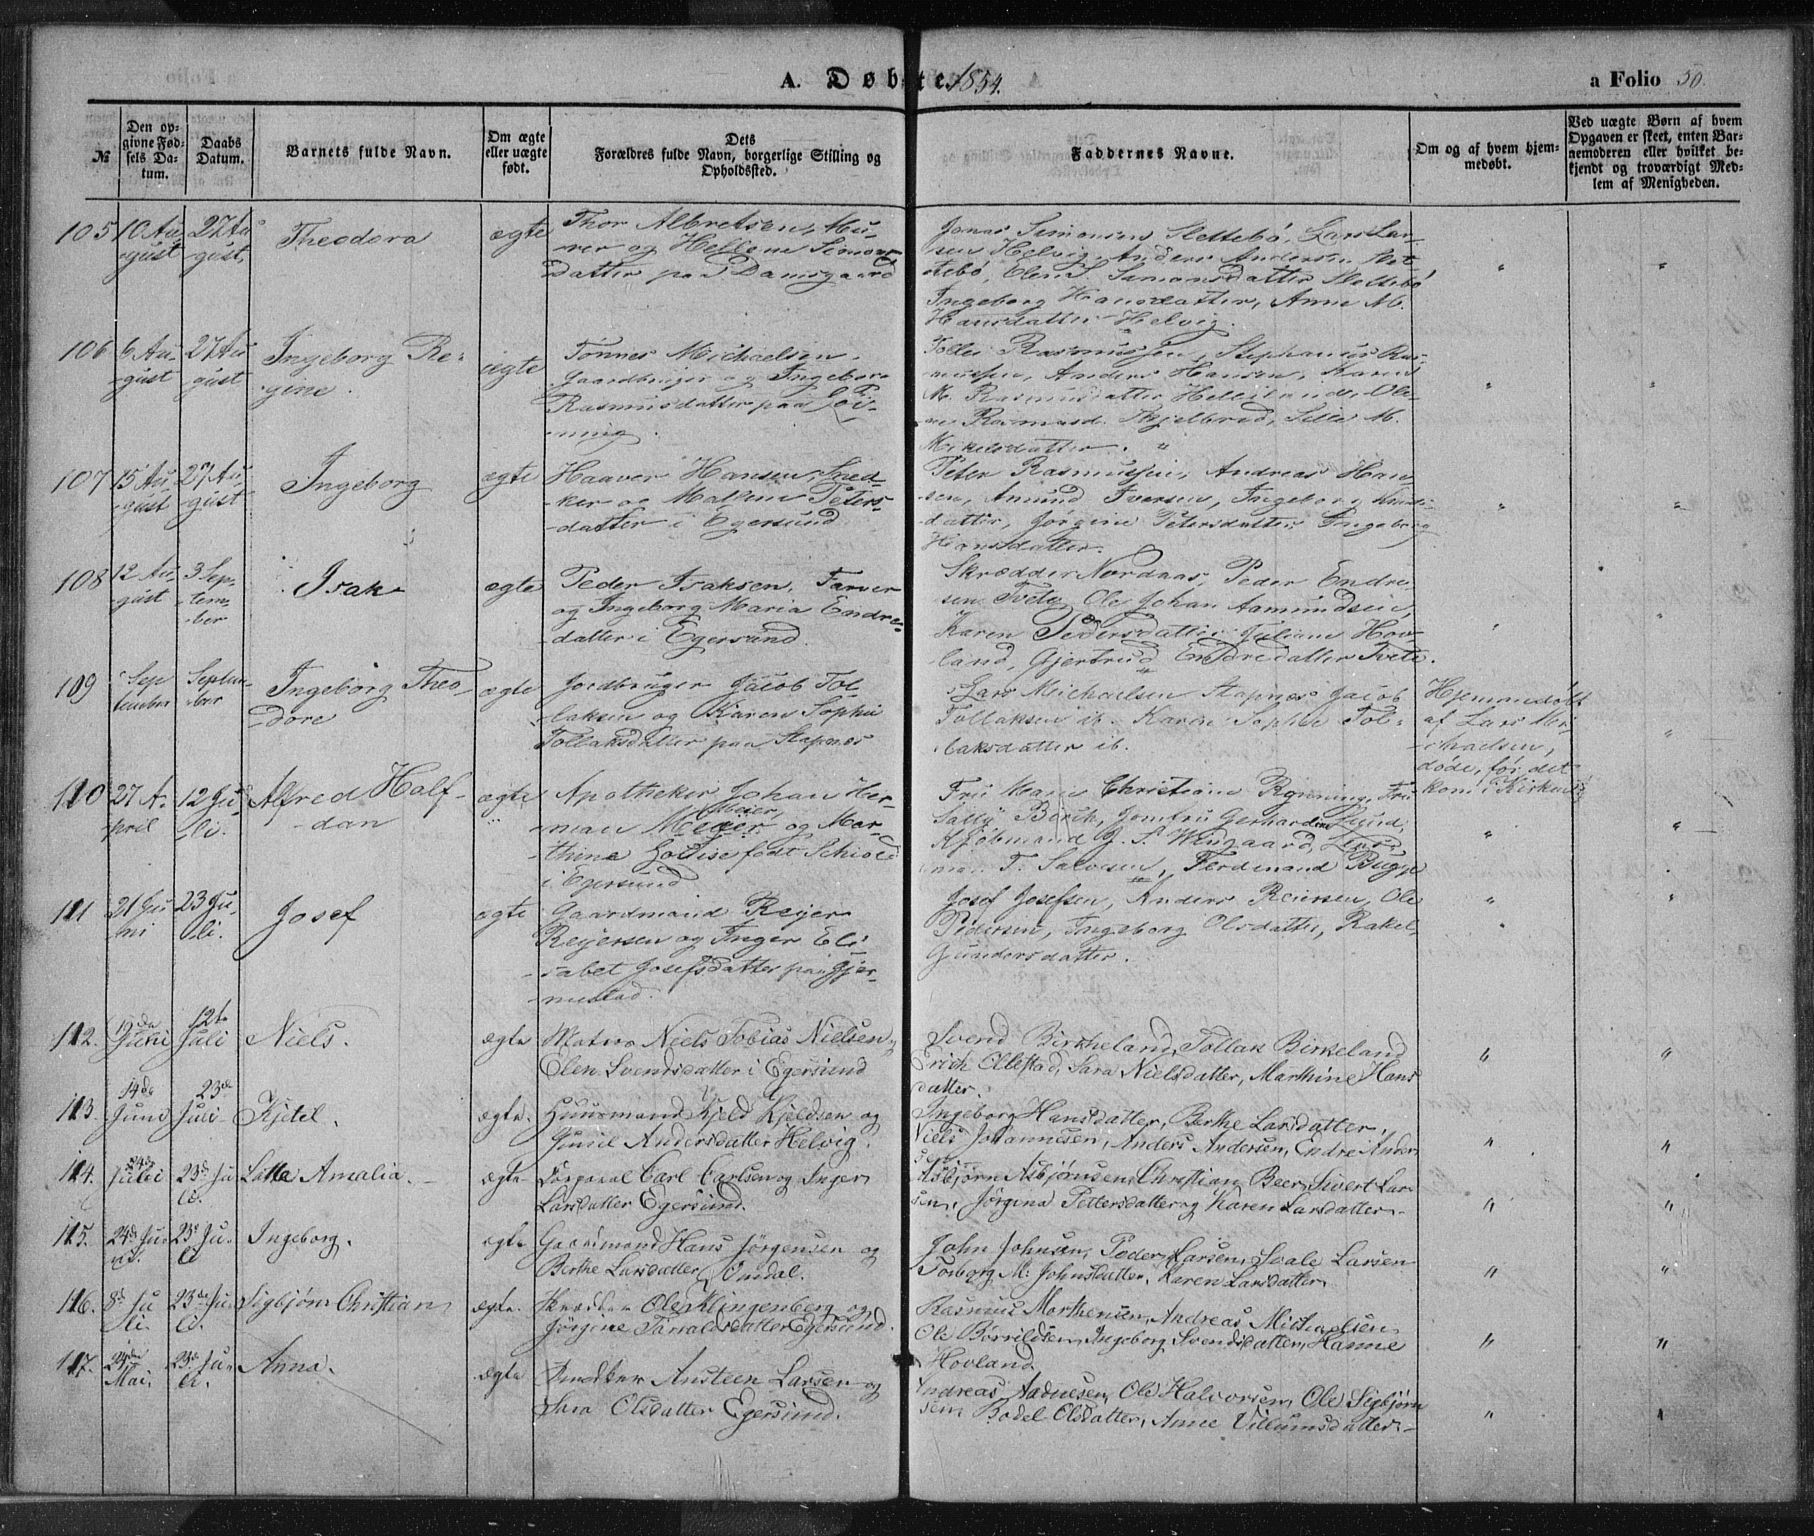 A. Døbte 1854.
a Folio 50.
№
Den opgivne Fødsels Datum.
Daabs Datum.
Barnets fulde Navn.
Om ægte eller uægte født.
Dets Forældres fulde Navn, borgerlige Stilling og Opholdssted.
Faddernes Navne.
Om og af hvem hjemmedøbt.
Ved uægte Børn af hvem Opgaven er skeet, enten Barnemoderen eller hvilket bekjendt og troværdigt Medlem af Menigheden.
105 10 Au- 27 Au-
gust gust
Theodora
ægte
Thor Albretsen, Mu-
rer og Hellene Simons
datter paa Damsgaard
Jonas Simonsen Slettebö, Lars Lar-
sen Helvig, Anders Andersen Slet
tebö, Elen S. Simonsdatter Slettebö
Ingeborg Hansdatter, Anne M.
Hansdatter Helvig.
106 6 Au- 27 Au
gust gust
Ingeborg Re-
gine.
ægte
Tönnes Michaelsen
Gaardbruger og Ingebor
Rasmusdatter paa
ning.
Tolles Rasmussen, Stephanus Ras-
mussen, Anders Hansen, Karen
M. Rasmusdatter Hellelande, Ole-
ne Rasmusd. Skjelbred, Sille M.
Mikelsdatter.
107 15 Au- 27 Au-
gust gust
Ingeborg
ægte
Haaver Hansen, Sned-
ker og Malene Peters-
datter i Egersund
Peter Rasmussen, Andreas Han-
sen, Amund Iversen, Ingeborg
datter, Jörgine Petersdatter, Ingeborg
Hansdatter.
108 12 Au- 3 Sep-
gust tem-
ber
Isak
ægte
Peder Isaksen, Farver
og Ingeborg Maria Endre-
datter i Egersund.
Skrædder Nordaas, Peder Endre-
sen Tveta, Ole Johan Aamundsen,
Karen Pedersdatter, Juliane Hov-
land, Gjertrud Endredatter Tveta.
109 Sep- Septem-
tember ber
Ingeborg Theo-
dore
ægte
Jordbruger Jacob Tol-
laksen og Karen Sophie
Tollaksdatter paa Stapnæs
Lars Michaelsen Stapnæs, Jacob
Tollaksen ib. Karen Sophie Tol-
laksdatter ib.
Hjemmedöbt
af Lars Mi-
chaelsen,
döde, för det
kom i Kirken
110 27 A- 12 Ju-
pril li.
Alfred Half-
dan
ægte
Apotheker Johan Her-
Meier,
man Meyer og Mar-
thine Lovise födt Schiold
i Egersund
Fru Maren Christiane Rynning, Fru
Sally Berik, Jomfru Gerhardine Lund,
Kjöbmand J. S. Wingaard,
T. Salvesen, Ferdinand Bugge
111 21 Ju- 23 Ju-
ni li.
Josef
ægte
Gaardmand Reyer
Reyersen og Inger Eli
sabet Josefsdatter paa Gjer-
mestad.
Josef Josefsen, Anders Reiersen, Ole
Pedersen, Ingeborg Olsdatter, Rakel
Gundersdatter.
112. 19de 12te
Juni Juli
Niels.
ægte
Matros Niels Tobias Nielsen,
Elen Svendsdatter i Egersund
Svend Birkeland, Tollak Birkeland
Erich Ollestad, Sara Nielsdatter, Marthine Hans
datter.
113. 14de 23de
Juni Juli
Kjitel.
ægte.
Huusmand Kjeld Kjeldsen og
Gunil Andersdatter Helvig.
Ingeborg Hansdatter, Berthe Larsdatter,
Niels Johannesen, Anders Andersen, Endre Anders
sen.
114. 24de 23de Ju
Juli li.
Lotta Amalia.
ægte
Korporal Carl Carlsen og Inger
Larsdatter Egersund.
Asbjörn Asbjörnsen, Christian Beer, Sivert Lar-
sen, Jörgina Pettersdatter og Karen Larsdatter.
115. 24de Ju- 23de Ju-
ni. li
Ingeborg.
ægte
Gaardmand Hans Jörgensen og
Berthe Larsdatter Omdal.
John Johnsen, Peder Larsen, Svale Larsen
Torborg M. Johnsdatter, Karen Larsdatter.
116. 8de Ju 23de Ju-
li. li.
Sigbjörn Christian
ægte.
Ole Klingenberg og
Jörgine Torvaldsdatter Egersund.
Rasmus Morthensen, Andreas Michaelsen
Ole Börrildsen, Ingeborg Svendsdatter, Hanne
Hovland
117. 24de 23de Ju-
Mai. li.
Anna.
ægte
Snedker Austeen Larsen og
Sara Olsdatter Egersund.
Andreas Aadnesen, Ole Halvorsen, Ole Sigbjörn
sen, Bodel Olsdatter, Anne Villumsdatter.